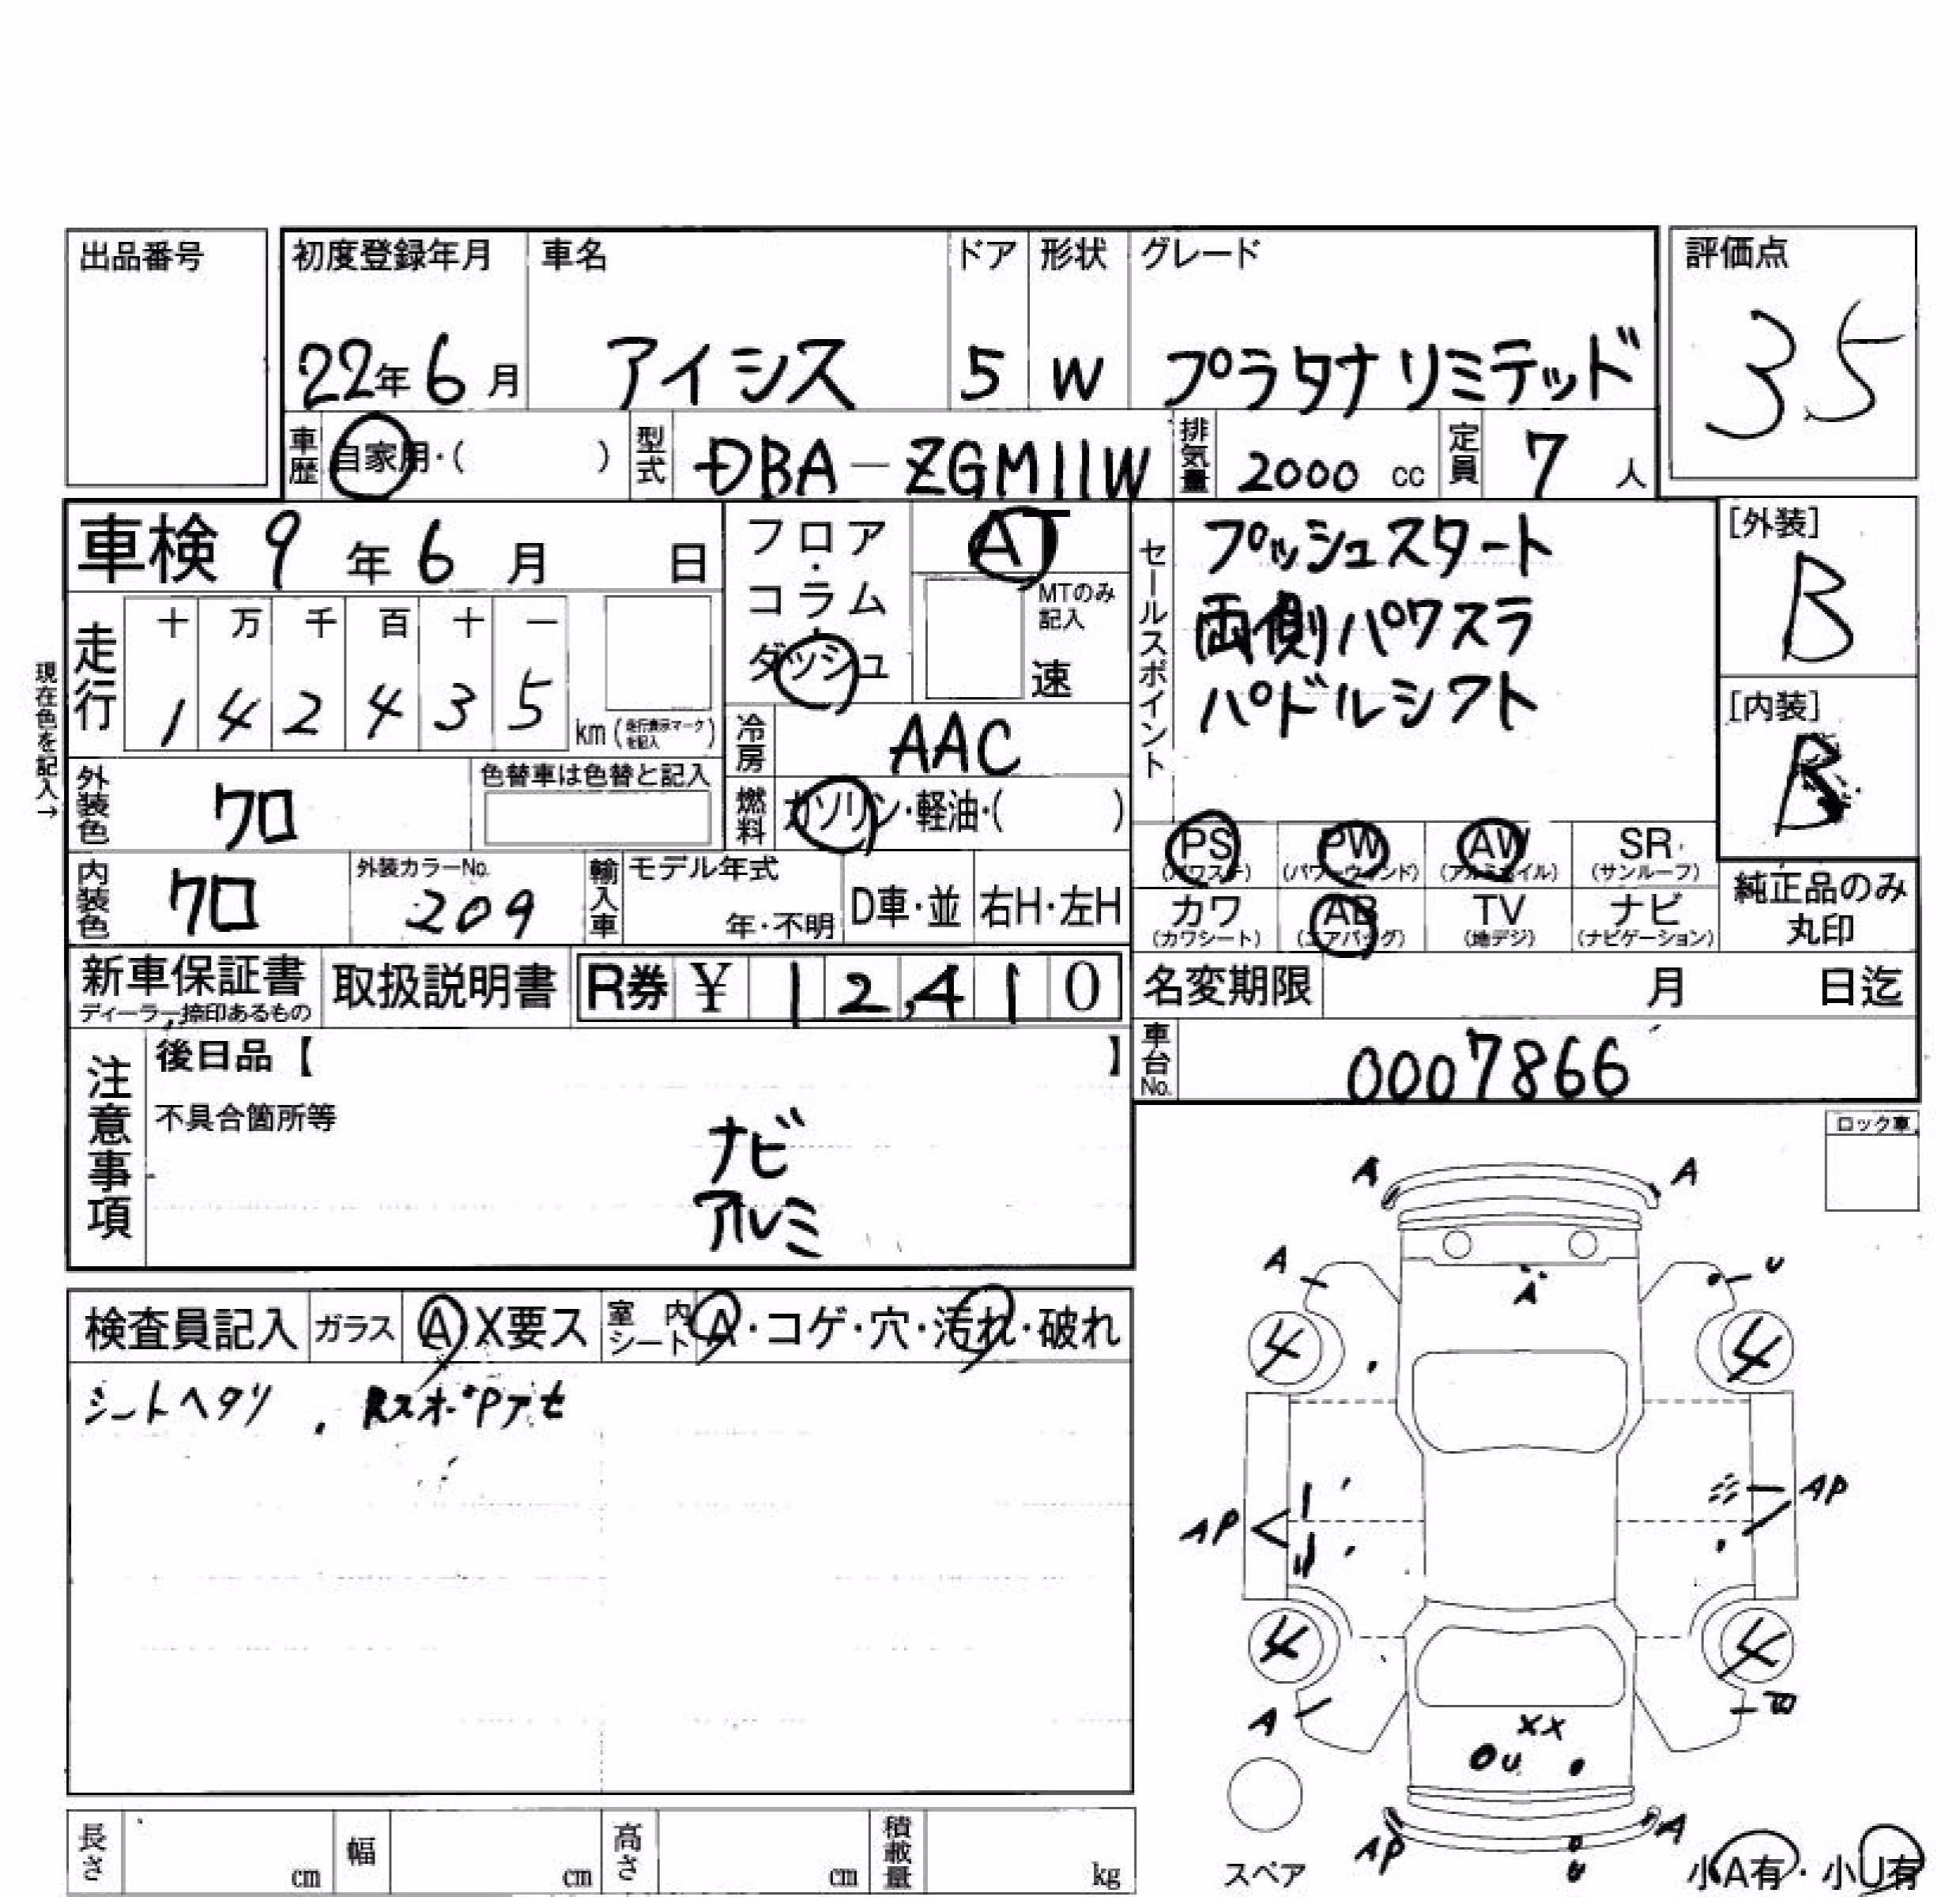 出品番号 初度登録年月 車名 ドア 形状 グレード 評価点
22年6月 アイシス 5 W プラタナリミテッド 35
車歴 自家用・( ) 型式 DBA-ZGM11W 排気量 2000 cc 定員 7 人
車検 9年6月 日 フロア・コラム・ダッシュ AT
MTのみ記入 速
セールスポイント プッシュスタート
両側パワスラ
パドルシフト
[外装] B
[内装] B
現在色を記入→
走行 十 万 千 百 十 一
1 4 2 4 3 5 km (走行表示マークを記入)
冷房 AAC
外装色 クロ 色替車は色替と記入 燃料 ガソリン・軽油・( )
PS (パワステ) PW (パワーウィンド) AW (アルミホイル) SR (サンルーフ)
カワ (カワシート) AB (エアバッグ) TV (地デジ) ナビ (ナビゲーション)
純正品のみ丸印
内装色 クロ 外装カラーNo. 209 輸入車 モデル年式 年・不明 D車・並 右H・左H
新車保証書 ディーラー捺印あるもの 取扱説明書 R券 ¥ 12,410 名変期限 月 日迄
車台No. 0007866
注意事項 後日品【 】
不具合箇所等
ナビ
アルミ
ロック車
検査員記入 ガラス A X要ス 室内シート A・コゲ・穴・汚れ・破れ
シートヘタリ . RスポPアセ
A A
A A U
4 4
AP AP
4 4
A B
XX
U
AP A
U
スペア 小A有・小U有
長さ cm 幅 cm 高さ cm 積載量 kg